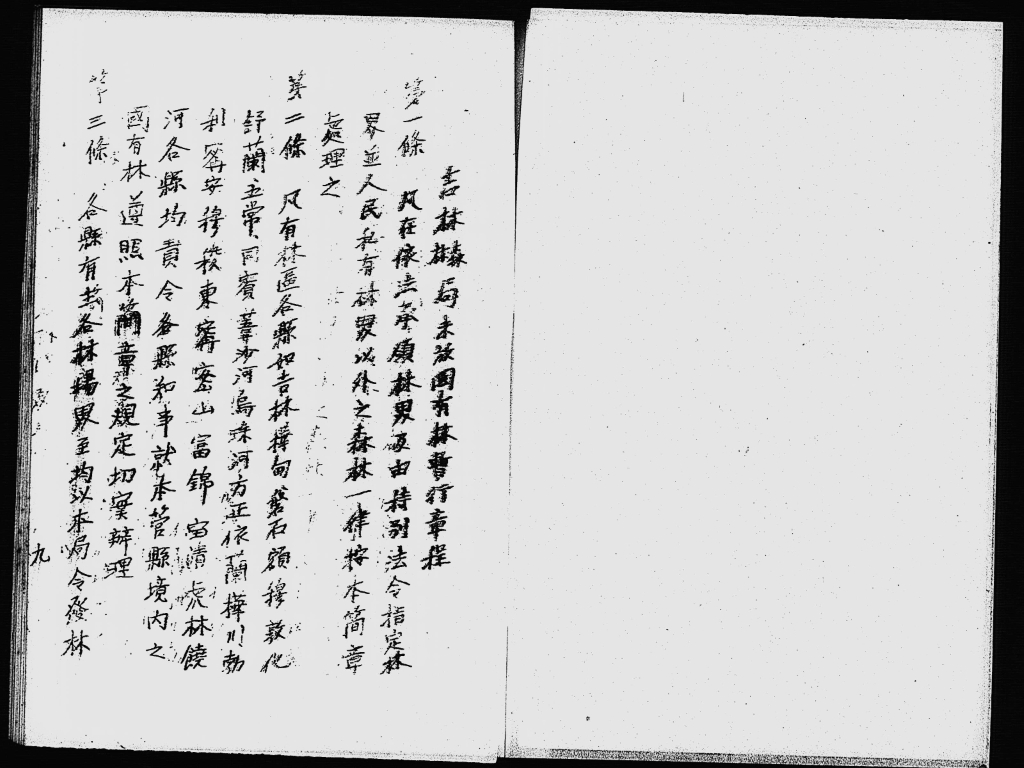 吉林林森局未放國有林暫行章程
第一條 凡在依法承領林界及由特別法令指定林
界並人民私有林界以外之森林一律按本簡章
處理之
第二條 凡有林區各縣如吉林樺甸磐石額穆敦化
舒蘭五常同賓葦沙河烏珠河方正依蘭樺川勃
利寗安穆稜東寗密山富錦 寳清虎林饒
河各縣均責令各縣知事就本管縣境內之
國有林遵照本簡章之規定切實辦理
第三條 各縣有 各林場界至均以本局令發林
九